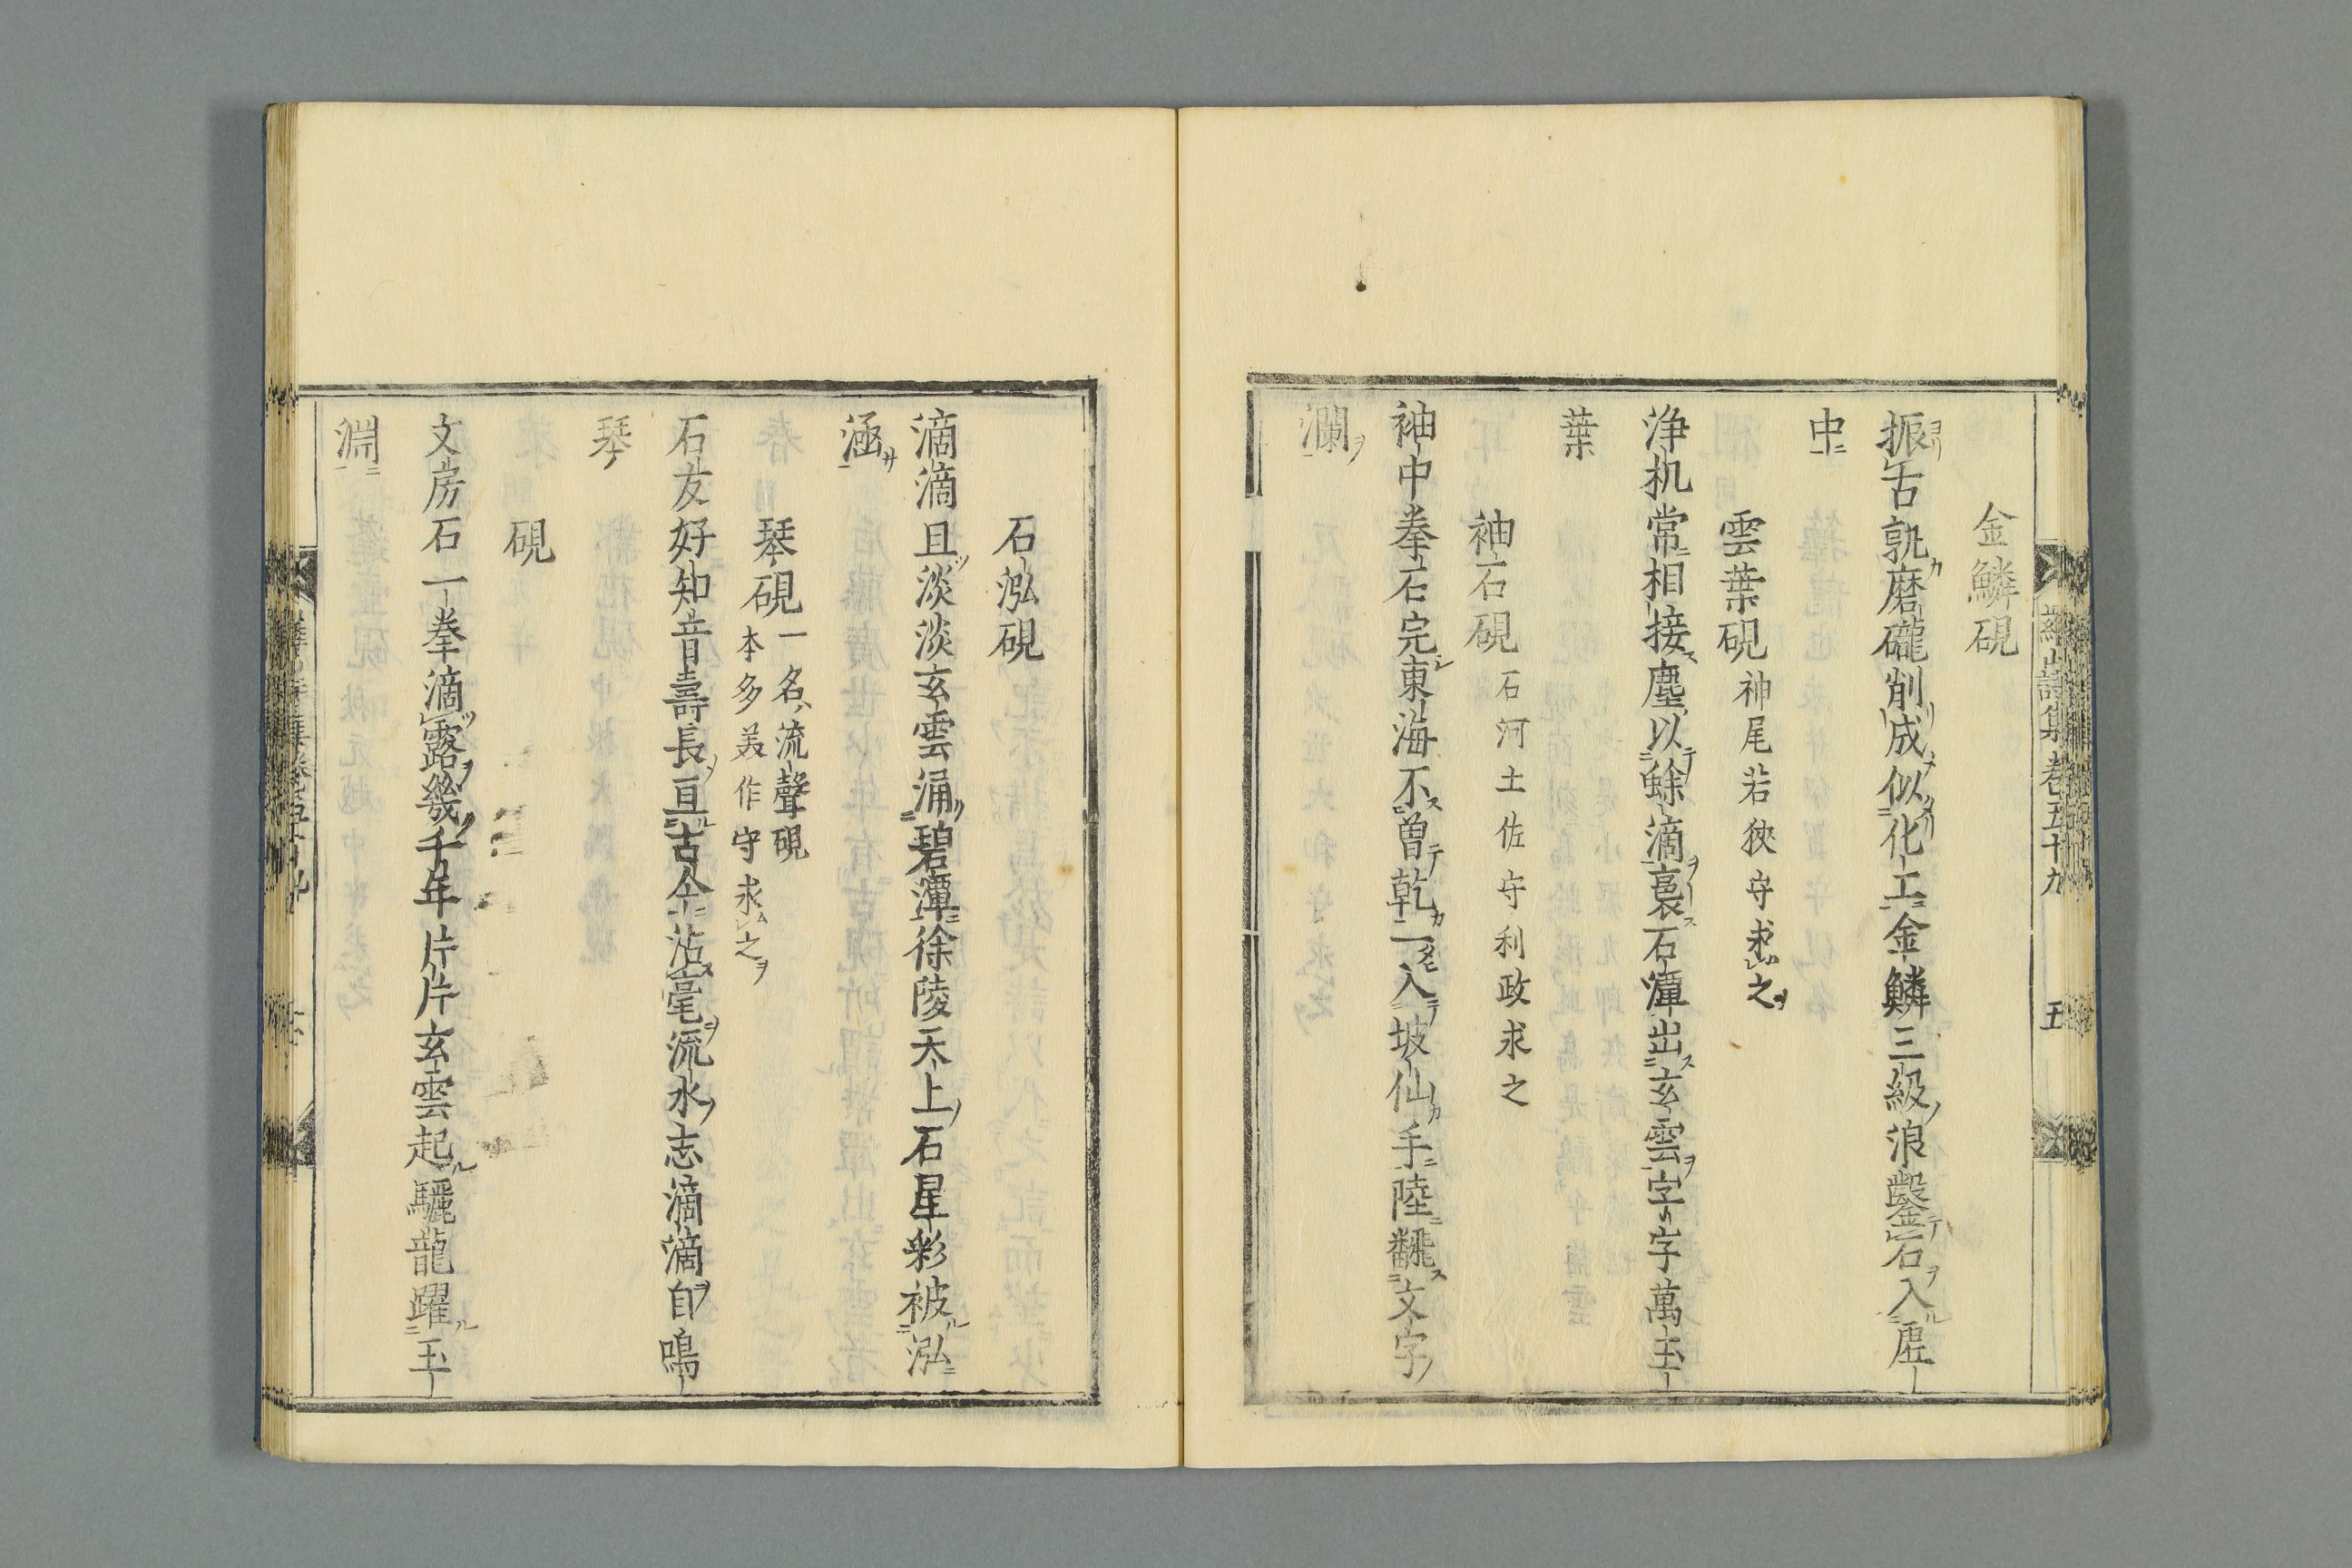 金鱗硯
振古孰磨礲削成似化工金鱗三級浪鑿石入虚
中
雲葉硯 神尾若狹守求之
浄机常相接塵以蜍滴裛石潭出玄雲字字萬玉
葉
袖石硯 石河土佐守利政求之
袖中拳石完東海不曽乾一入坡仙手陸飜文字
瀾
石泓硯
滴滴且淡淡玄雲涌碧潭徐陵天上石星彩被泓
涵
琴硯 一名流聲硯
本多美作守求之
石友好知音壽長亘古今沾毫流水志滴滴自鳴
琴
硯
文房石一拳滴露幾千年片片玄雲起驪龍躍玉
淵